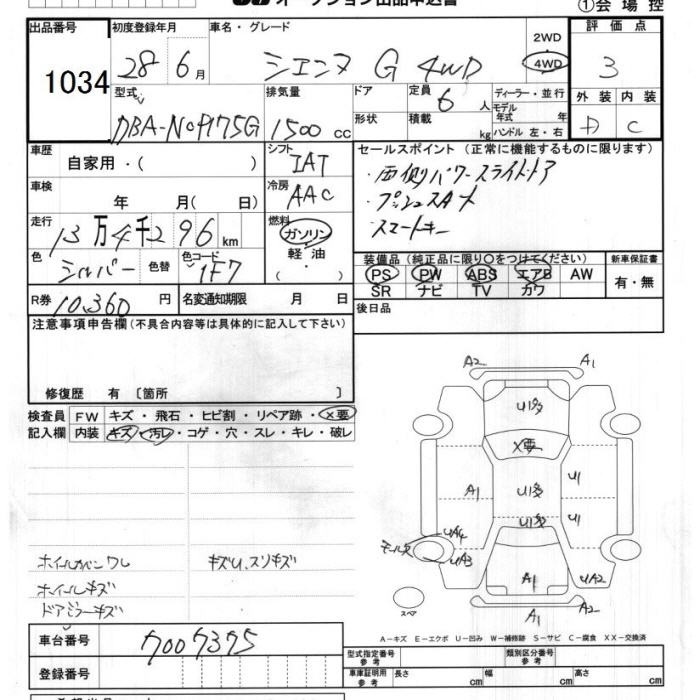 オークション出品申込書
①会場控
出品番号 初度登録年月 車名・グレード 2WD 評価点
1034 28 6月 シエンタ G 4WD 4WD 3
型式 排気量 ドア 定員 6人 ディーラー・並行 外装 内装
モデル年式 年
形状 積載 kg ハンドル 左・右
DBA-NCP175G 1500 cc D C
車歴 自家用・( ) シフト IAT セールスポイント(正常に機能するものに限ります)
車検 年 月( 日) 冷房 AAC ・両側パワースライドドア
・プッシュスタート
・スマートキー
走行 13万4千296km 燃料 ガソリン・軽油・( )
色 シルバー 色替 色コード 1F7
装備品(純正品に限り○をつけてください) 新車保証書
PS PW ABS エアB AW 有・無
SR ナビ TV カワ
R券 10,360円 名変通知期限 月 日 後日品
注意事項申告欄(不具合内容等は具体的に記入して下さい)
修復歴 有〔箇所 〕
検査員 FW キズ・飛石・ヒビ割・リペア跡・X要
記入欄 内装 キズ・汚レ・コゲ・穴・スレ・キレ・破レ
A2 A1
U1多
X要
A1 U1多 U1
U1多 U1
UA4
UA3 A1 UA2
A1 A2
スペア
キズU.スリキズ
ホイールキズ
ドアミラーキズ
A-キズ E-エクボ U-凹み W-補修跡 S-サビ C-腐食 XX-交換済
車台番号 7007375
型式指定番号 参考 類別区分番号 参考
登録番号 車庫証明用 参考 長さ cm 幅 cm 高さ cm